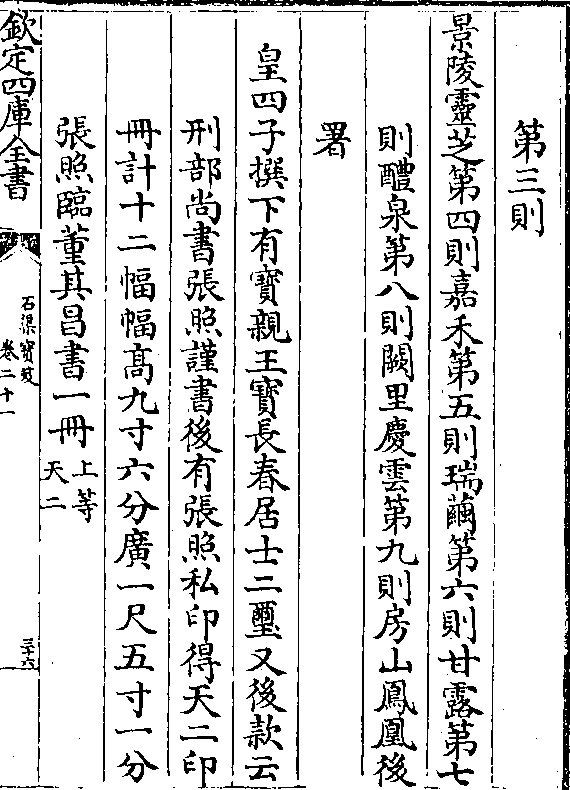 第三則
景陵靈芝第四則嘉禾第五則瑞繭第六則甘露第七
則醴泉第八則闕里慶雲第九則房山鳳凰後
署
皇四子撰下有寳親王寳長春居士二璽又後款云
刑部尚書張照謹書後有張照私印得天二印
冊計十二幅幅高九寸六分廣一尺五寸一分
張照臨董其昌書一冊上等
天二
欽定四庫全書
石渠寳笈
卷二十一
三十六